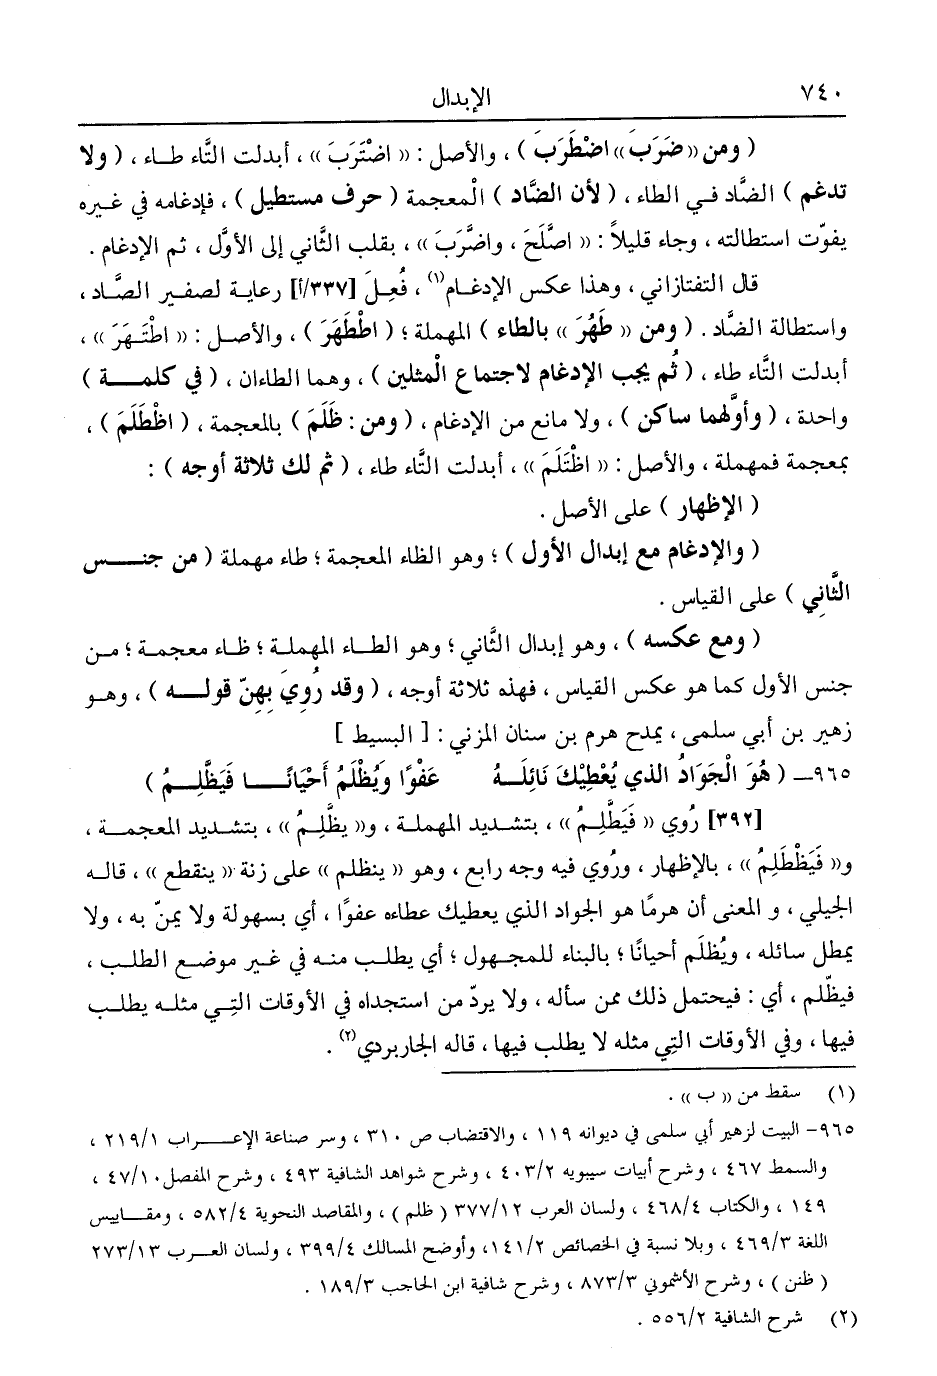 ٧٤٠ الإبدال
( ومن « ضَرَبَ » اضْطَرَبَ ) ، والأصل : « اضْتَرَبَ » ، أبدلت التَّاء طـاء ، ( ولا
تدغم ) الضَّاد فـي الطاء ، ( لأن الضَّاد ) الْمعجمة ( حرف مستطيل ) ، فإدغامه في غـيره
يفوّت استطالته ، وجاء قليلاً : « اصَّلَحَ ، واضَّرَبَ » ، بقلب الثَّاني إلى الأوَّل ، ثم الإدغام .
قال التفتازاني ، وهذا عكس الإدغـام(١) ، فُعِلَ [٣٣٧/أ] رعاية لصفير الصَّاد ،
واستطالة الضَّاد . ( ومن « طَهُرَ » بالطاء ) المهملة ؛ ( اطْطَهَرَ ) ، والأصـل : « اطْتَـهَرَ » ،
أبدلت التَّاء طاء ، ( ثُم يجب الإدغام لاجتماع الْمثلين ) ، وهما الطاءان ، ( في كلمـــة )
واحدة ، ( وأوَّلهما ساكن ) ، ولا مانع من الإدغام ، ( ومن : ظَلَمَ ) بالمعجمة ، ( اظْطَلَمَ ) ،
بمعجمة فمهملة ، والأصل : « اظْتَلَمَ » ، أبدلت التَّاء طاء ، ( ثم لك ثلاثة أوجه ) :
( الإظهار ) على الأصل .
( والإدغام مع إبدال الأول ) ؛ وهو الظاء المعجمة ؛ طاء مهملة ( من جنــــس
الثَّانِي ) على القياس .
( ومع عكسه ) ، وهو إبدال الثَّاني ؛ وهو الطـاء المهملـة ؛ ظـاء معجمـة ؛ مـن
جنس الأول كما هو عكس القياس ، فهذه ثلاثة أوجه ، ( وقد رُوِيَ بِهِنّ قولــــه ) ، وهـو
زهير بن أبي سلمى ، يمدح هرم بن سنان المزني : [ البسيط ]
٩٦٥ــ ( هُوَ الْجَوَادُ الذي يُعْطِيْكَ نَائِلَـهُ عَفْوًا وَيُظْلَمُ أَحْيَانًـــا فَيَظَّلِـــمُ )
[٣٩٢] رُوي « فَيَطَّلِمُ » ، بتشديد المهملة ، و« يظَّلِمُ » ، بتشـديد المعجمـة ،
و« فَيَظْطَلِمُ » ، بالإظهار ، ورُوي فيه وجه رابع ، وهو « ينظلم » على زنة « ينقطع » ، قالـه
الجيلي ، و المعنى أن هرمًا هو الجواد الذي يعطيك عطاءه عفوًا ، أي بسهولة ولا يمنّ به ، ولا
يمطل سائله ، ويُظلَم أحيانًا ؛ بالبناء للمجـهول ؛ أي يطلـب منـه في غـير موضـع الطلـب ،
فيظّلم ، أي : فيحتمل ذلك ممن سأله ، ولا يردّ من استجداه في الأوقات التِـي مثلـه يطلـب
فيها ، وفي الأوقات التِي مثله لا يطلب فيها ، قاله الجاربردي(٢) .
(١) سقط من « ب » .
٩٦٥- البيت لزهير أبي سلمى في ديوانه ١١٩ ، والاقتضاب ص ٣١٠ ، وسر صناعة الإعـــراب ٢١٩/١ ،
والسمط ٤٦٧ ، وشرح أبيات سيبويه ٤٠٣/٢ ، وشرح شواهد الشافية ٤٩٣ ، وشرح المفصل٤٧/١٠ ،
١٤٩ ، والكتاب ٤٦٨/٤ ، ولسان العرب ٣٧٧/١٢ ( ظلم ) ، والمقاصد النحوية ٥٨٢/٤ ، ومقـاييس
اللغة ٤٦٩/٣ ، وبلا نسبة في الخصائص ١٤١/٢، وأوضح المسالك ٣٩٩/٤ ، ولسان العـرب ٢٧٣/١٣
( ظنن ) ، وشرح الأشموني ٨٧٣/٣ ، وشرح شافية ابن الحاجب ١٨٩/٣ .
(٢) شرح الشافية ٥٥٦/٢ .